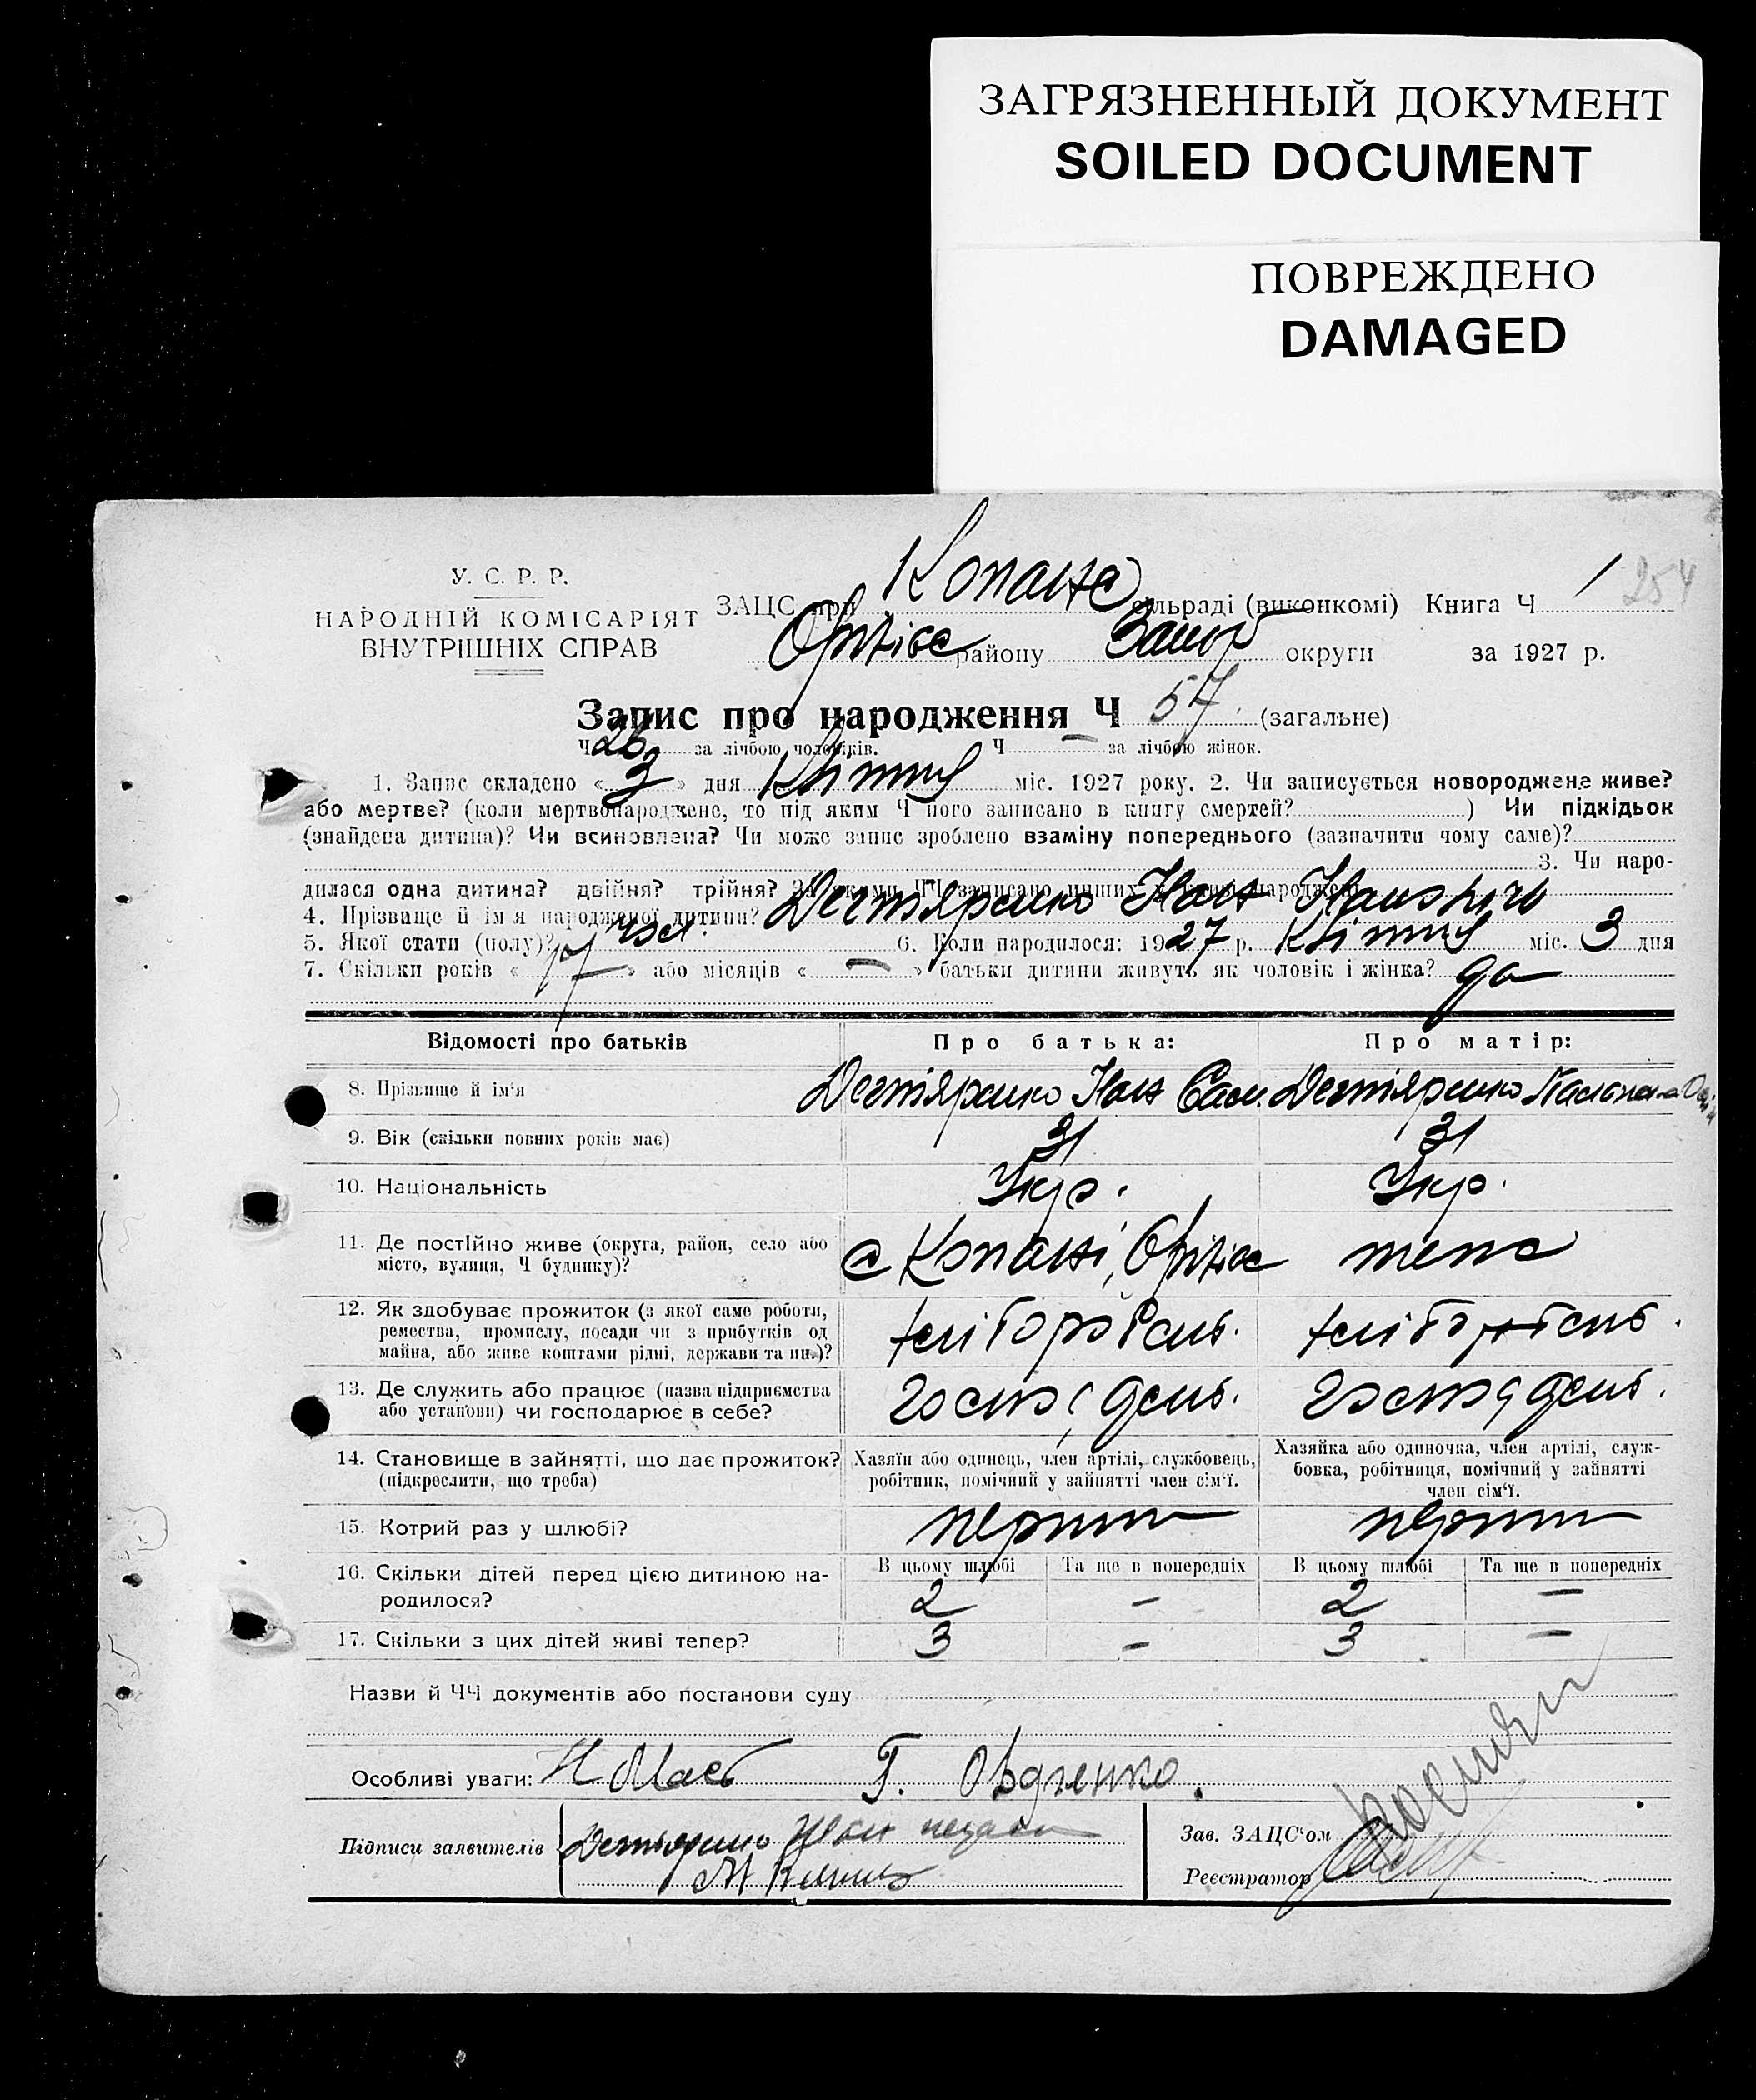 ЗАГРЯЗНЕННЫЙ ДОКУМЕНТ
SOILED DOCUMENT
ПОВРЕЖДЕНО
DAMAGED
254
У. С. Р. Р.
НАРОДНІЙ КОМІСАРІЯТ
ВНУТРІШНІХ СПРАВ
ЗАЦС при Копанс сільраді (виконкомі) Книга Ч 1
Оріхівс району Запор округи за 1927 р.
Запис про народження Ч 57 (загальне)
Ч 26 за лічбою чоловіків. Ч — за лічбою жінок.
1. Запис складено «3» дня Квітня міс. 1927 року. 2. Чи записується новороджене живе?
або мертве? (коли мертвонароджене, то під яким Ч його записано в книгу смертей? ) Чи підкідьок
(знайдена дитина)? Чи всиновлена? Чи може запис зроблено взаміну попереднього (зазначити чому саме)?
3. Чи наро-
дилася одна дитина? двійня? трійня? За якими ЧЧ записано инших в книзі народжень
4. Прізвище й ім'я народженої дитини? Дегтяренко Іван Іванович
5. Якої стати (полу)? чол. 6. Коли народилося: 1927 р. Квітня міс. 3 дня
7. Скільки років « » або місяців « — » батьки дитини живуть як чоловік і жінка? да
Відомості про батьків Про батька: Про матір:
8. Прізвище й ім'я Дегтяренко Іван Сам. Дегтяренко
9. Вік (скільки повних років має) 31 31
10. Національність Укр. Укр.
11. Де постійно живе (округа, район, село або
місто, вулиця, Ч будинку)? с Копані, Оріхівс теж
12. Як здобуває прожиток (з якої саме роботи,
ремества, промислу, посади чи з прибутків од
майна, або живе коштами рідні, держави та ин.)? хліборобств. хліборобств.
13. Де служить або працює (назва підприємства
або установи) чи господарює в себе?
14. Становище в зайнятті, що дає прожиток?
(підкреслити, що треба)
Хазяїн або одинець, член артілі, службовець,
робітник, помічний у зайнятті член сім'ї.
Хазяйка або одиночка, член артілі, служ-
бовка, робітниця, помічний у зайнятті
член сім'ї.
15. Котрий раз у шлюбі? перший перший
16. Скільки дітей перед цією дитиною на-
родилося?
В цьому шлюбі Та ще в попередніх В цьому шлюбі Та ще в попередніх
2 — 2 —
17. Скільки з цих дітей живі тепер? 3 — 3 —
Назви й ЧЧ документів або постанови суду
Особливі уваги: Г. Овдієнко.
Підписи заявителів Дегтяренко
Зав. ЗАЦС'ом
Реєстратор